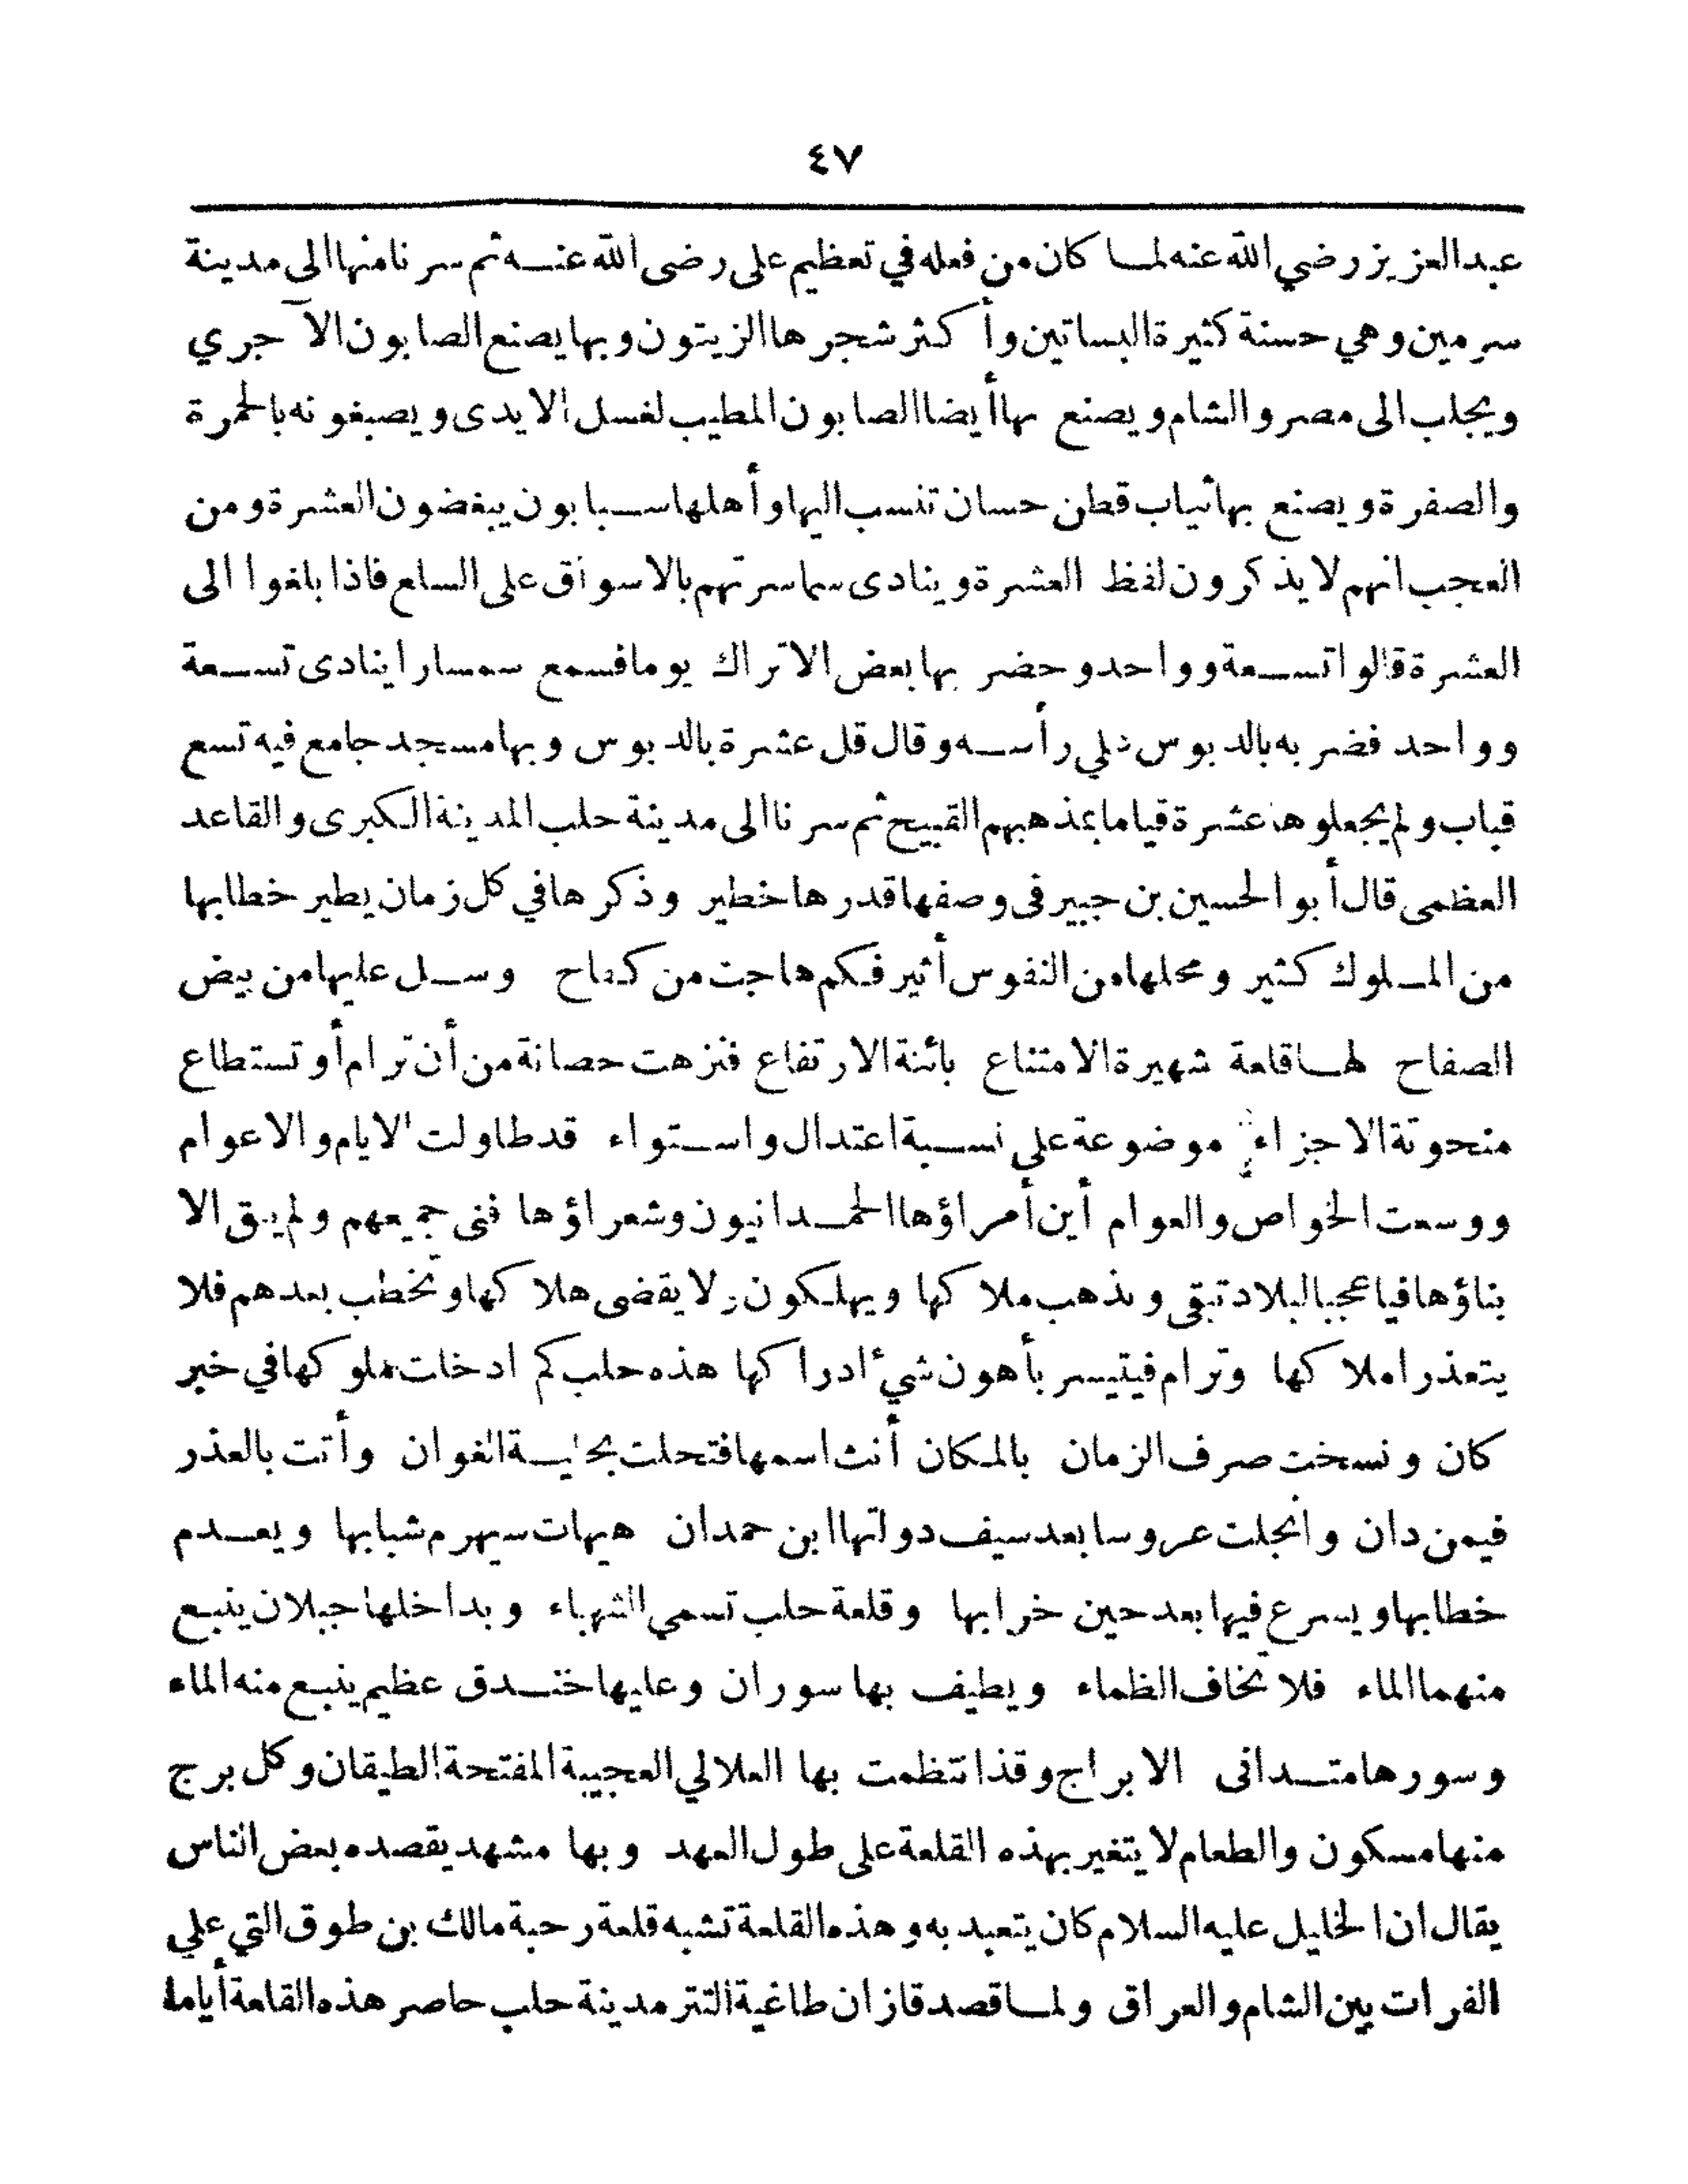 ٤٧
عبد العزيز رضي الله عنه لما كان من فعله في تعظيم على رضى الله عنه ثم سرنا منها الى مدينة
سرمين وهي حسنة كثيرة البساتين وأكثر شجرها الزيتون وبها يصنع الصابون الآجري
ويجلب الى مصر والشام ويصنع بها أيضا الصابون المطيب لغسل الايدى ويصبغونه بالحمرة
والصفرة ويصنع بها ثياب قطن حسان تنسب اليها وأهلها سبابون يبغضون العشرة ومن
العجب انهم لا يذكرون لفظ العشرة وينادى سماسرتهم بالاسواق على السلع فاذا بلغوا الى
العشرة قالوا تسعة وواحد وحضر بها بعض الاتراك يوما فسمع سمسارا ينادى تسعة
وواحد فضربه بالدبوس على رأسه وقال قل عشرة بالدبوس وبها مسجد جامع فيه تسع
قباب ولم يجعلوها عشرة قياما بمذهبهم القبيح ثم سرنا الى مدينة حلب المدينة الكبرى والقاعد
العظمى قال أبو الحسين بن جبير فى وصفها قدرها خطير وذكرها في كل زمان يطير خطابها
من الملوك كثير ومحلها من النفوس أثير فكم هاجت من كفاح وسل عليها من بيض
الصفاح لها قلعة شهيرة الامتناع بائنة الارتفاع فنزهت حصانة من أن ترام أو تستطاع
منحوتة الاجزاء موضوعة على نسبة اعتدال واستواء قد طاولت الايام والاعوام
ووسعت الخواص والعوام أين أمراؤها الحمدانيون وشعراؤها فنى جميعهم ولم يبق الا
بناؤها فيا عجبا لبلاد تبقى وتذهب ملاكها ويهلكون ولا يقضى هلاكها وتخطب بعدهم فلا
يتعذر املاكها وترام فيتيسر بأهون شيء ادراكها هذه حلب كم ادخلت ملوكها في خبر
كان ونسخت صرف الزمان بالمكان أنث اسمها فتحلت بحلية الغوان وأتت بالعذر
فيمن دان وانجلت عروسا بعد سيف دولتها ابن حمدان هيهات سيهرم شبابها ويعدم
خطابها ويسرع فيها بعد حين خرابها وقلعة حلب تسمي الشهباء وبداخلها جبلان ينبع
منهما الماء فلا تخاف الظماء ويطيف بها سوران وعليها خندق عظيم ينبع منه الماء
وسورها متدانى الابراج وقد انتظمت بها العلالي العجيبة المفتحة الطيقان وكل برج
منها مسكون والطعام لا يتغير بهذه القلعة على طول العهد وبها مشهد يقصده بعض الناس
يقال ان الخليل عليه السلام كان يتعبد به وهذه القلعة تشبه قلعة رحبة مالك بن طوق التي علي
الفرات بين الشام والعراق ولما قصد قازان طاغية التتر مدينة حلب حاصر هذه القلعة أياما